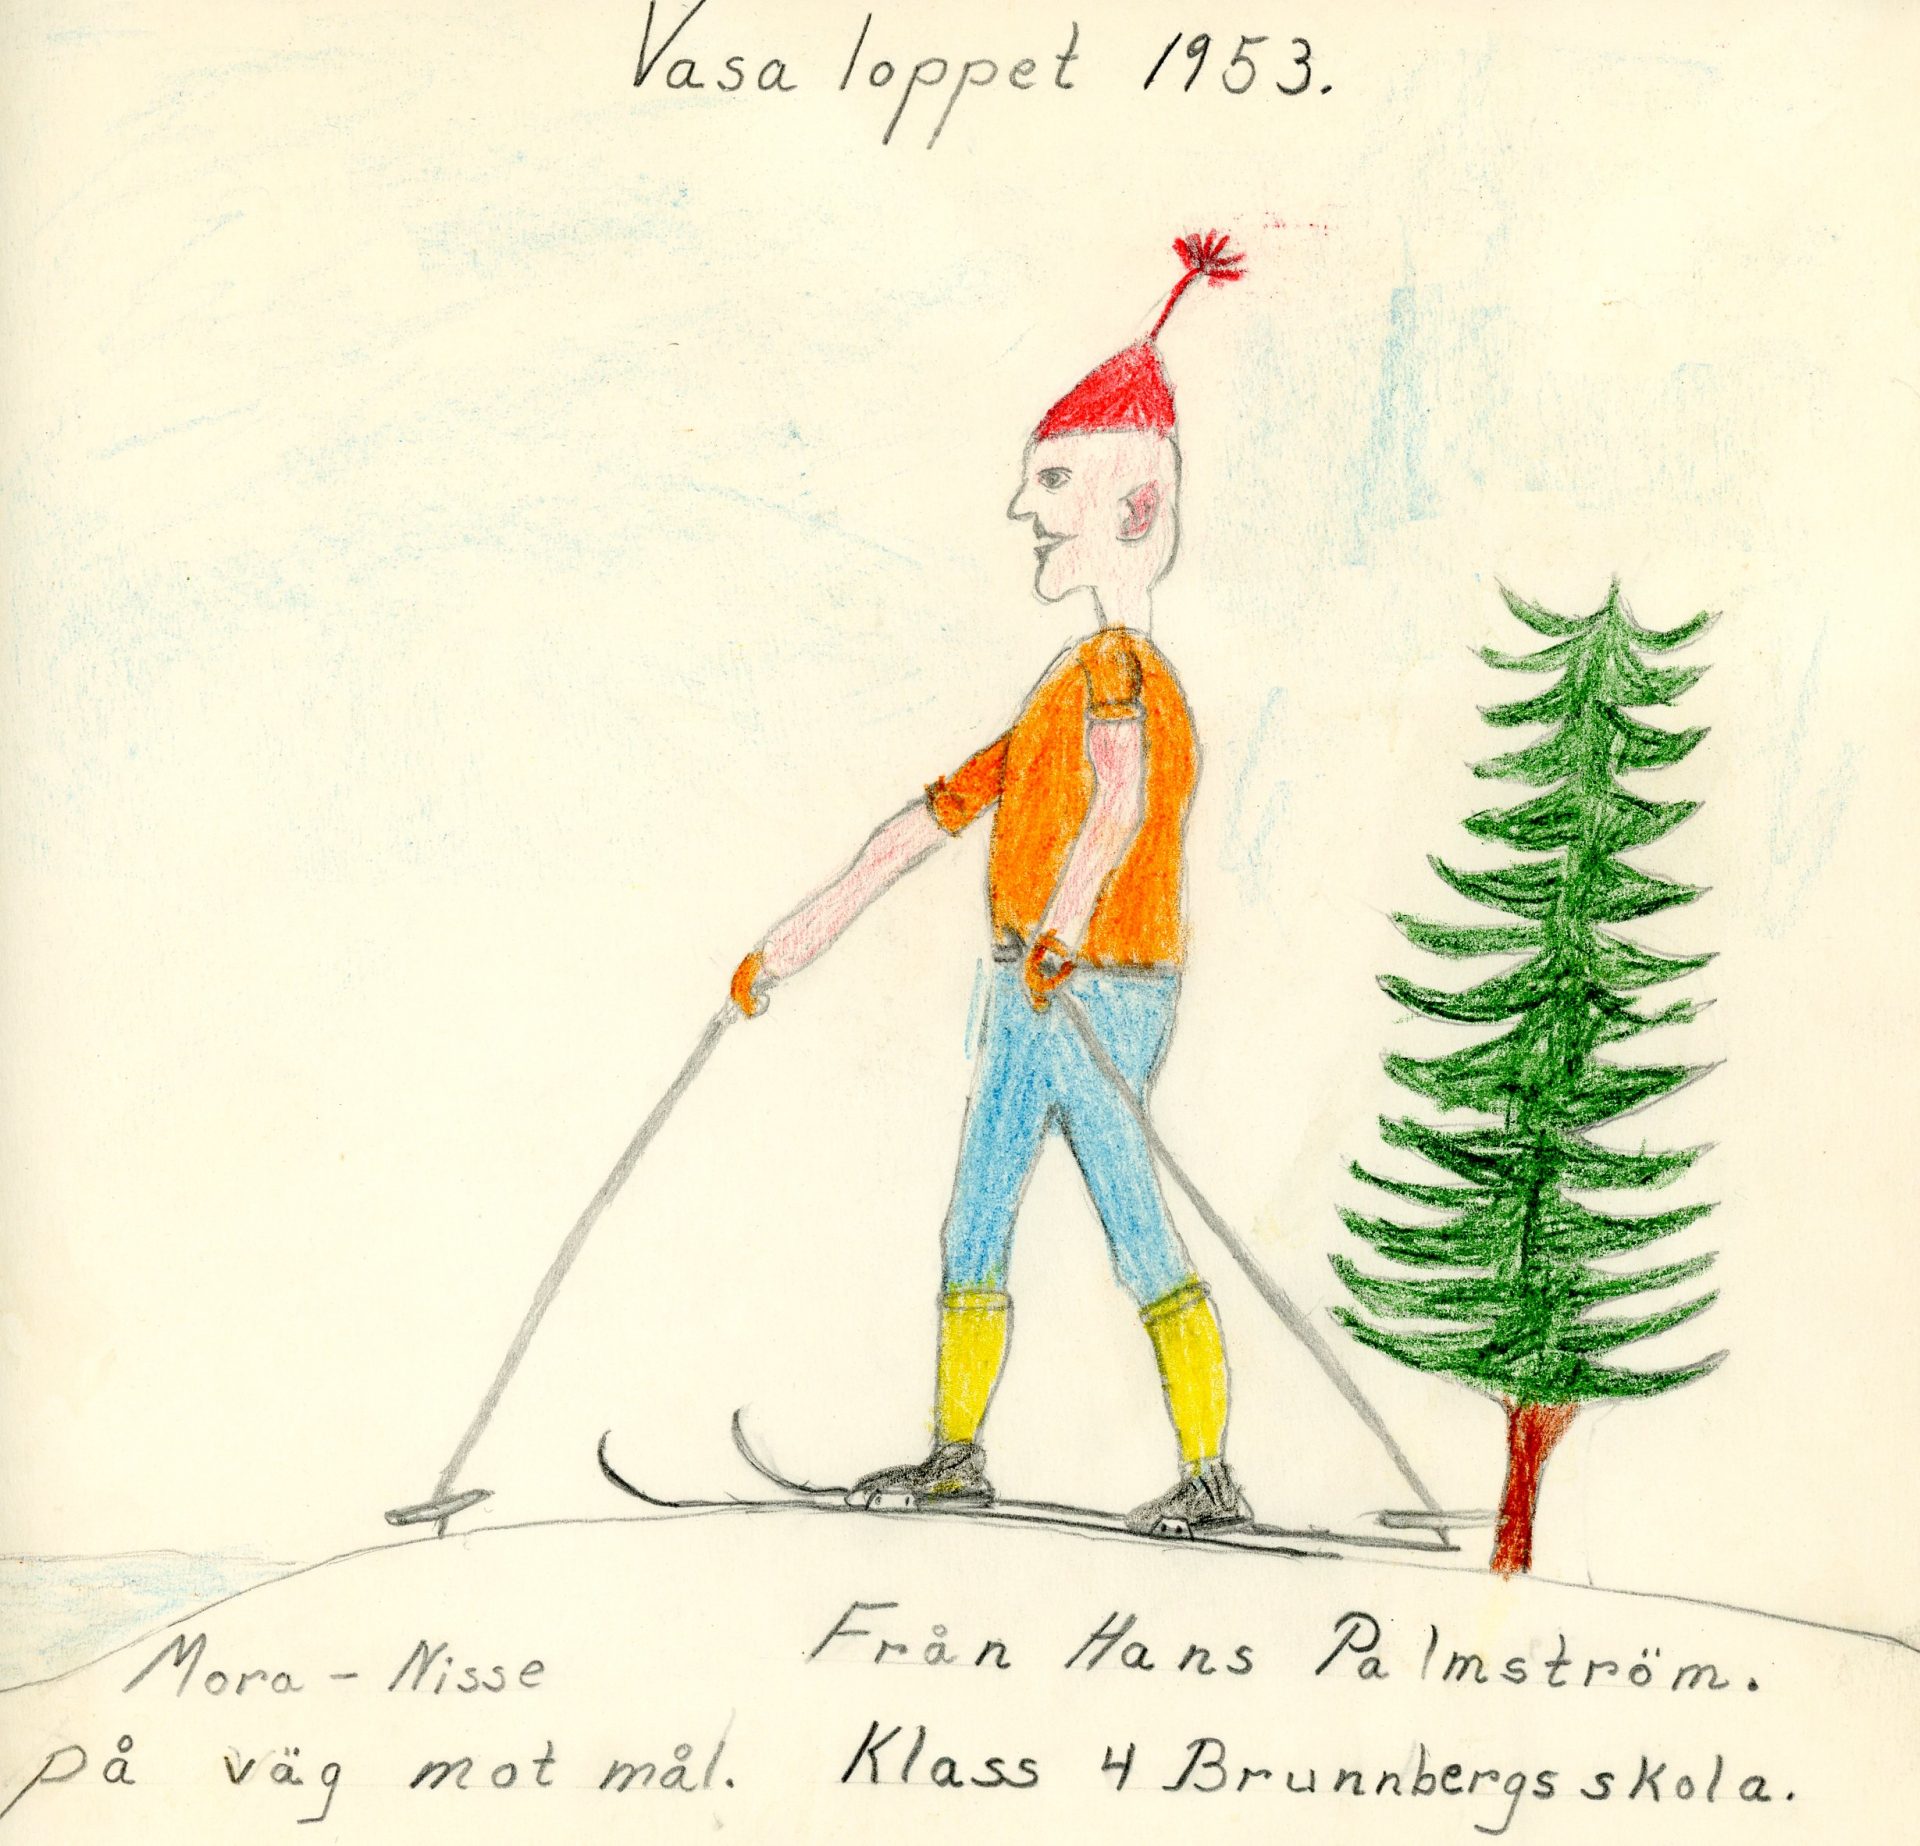 Vasa loppet 1953.
Mora - Nisse
på väg mot mål.
Från Hans Palmström.
Klass 4 Brunnbergsskola.